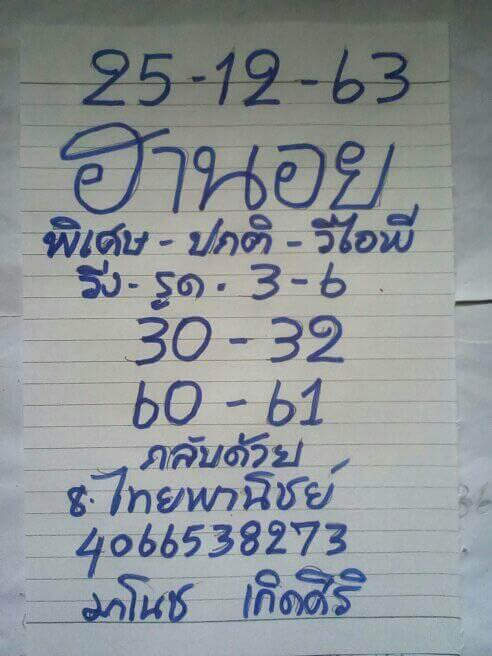 25-12-63
ฮานอย
พิเศษ - ปกติ - วีไอพี
วิ่ง - รูด - 3-6
30 - 32
60 - 61
กลับด้วย
ธ. ไทยพานิชย์
4066538273
มาโนช เกิดศิริ